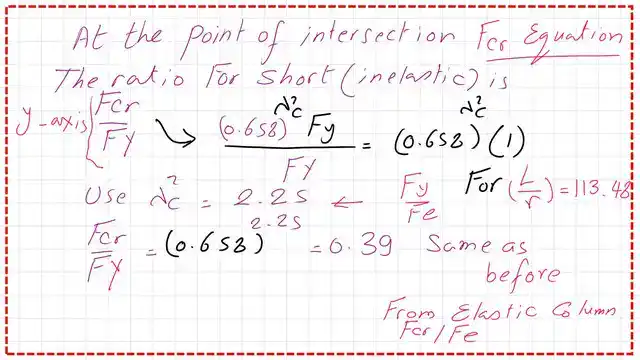 At the point of intersection Fcr Equation
The ratio For short (inelastic) is
y-axis { Fcr/Fy → (0.658)^λc² Fy / Fy = (0.658)^λc² (1)
Use λc² = 2.25 ← Fy/Fe For (L/r) = 113.48
Fcr/Fy = (0.658)^2.25 = 0.39 Same as
before
From Elastic Column
Fcr/Fe